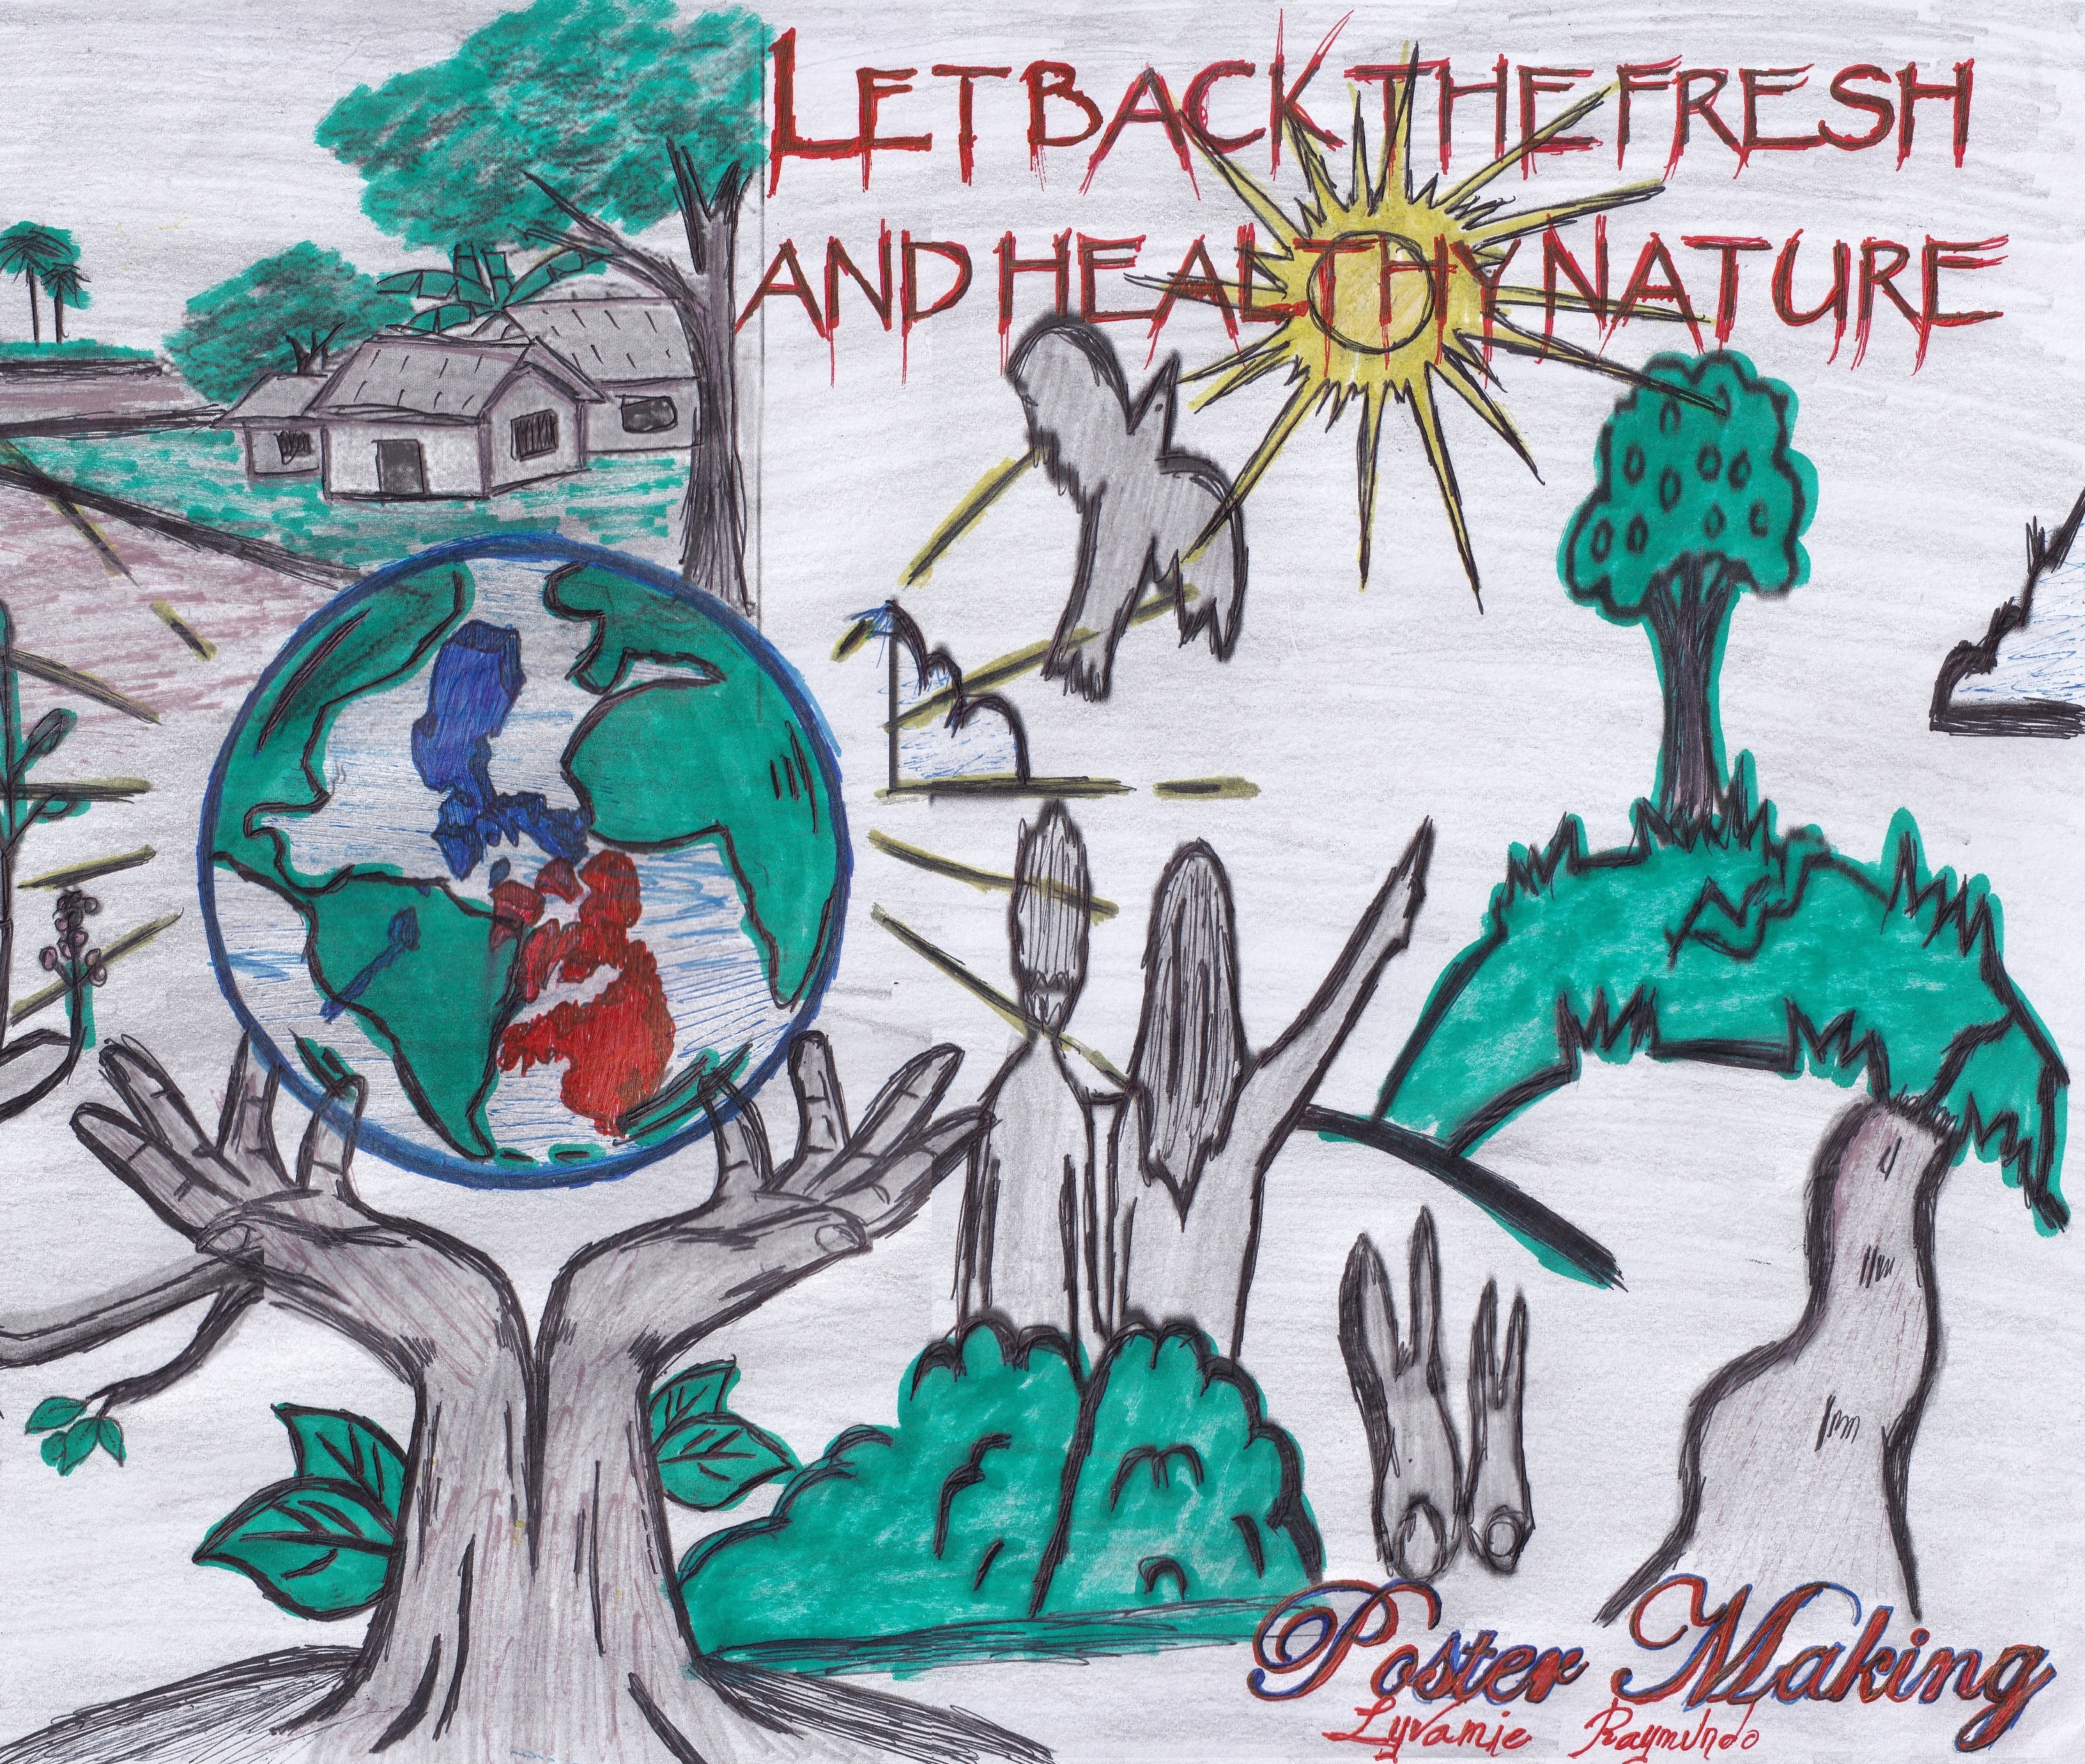 LET BACK THE FRESH
AND HEALTHY NATURE
Poster Making
Lyvamie Raymundo